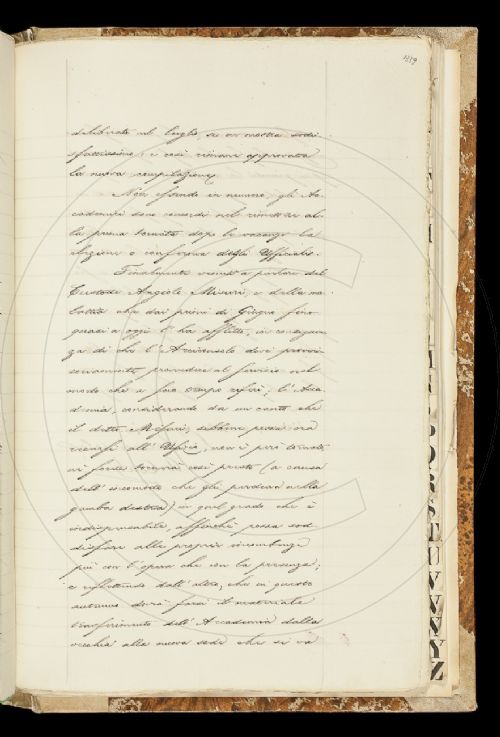 deliberato nel luglio, se ne mostra sodi-
sfattissimo; e così rimane approvata
la nuova compilazione.
Non essendo in numero, gli Ac-
cademici sono concordi nel rimettere al-
la prima tornata dopo le vacanze la
elezione o conferma degli Uffiziali.
Finalmente venuti a parlare del
Custode Angiolo e della ma-
lattia che dai primi di Giugno fino
quasi a oggi l'ha afflitto, in conseguen-
za di che l'Arciconsolo dovè provvi-
soriamente provvedere al servizio nel
modo che a suo tempo riferì; l'Acca-
demia, considerando da un canto che
il detto sebbene possa ora
recarsi all'Ufizio, non è però tornato
nè forse tornerà così presto (a causa
dell'incomodo che gli perdura nella
gamba destra) in quel grado che è
indispensabile, affinchè possa sod-
disfare alle proprie incumbenze
più con l'opera che con la presenza;
e riflettendo dall'altro, che in questo
autunno dovrà farsi il materiale
trasferimento dell'Accademia dalla
vecchia alla nuova sede che si va